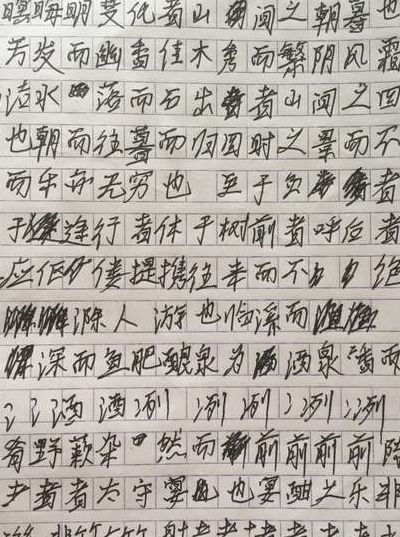 晦明变化者山间之朝暮也
芳发而幽香佳木秀而繁阴风霜
洁水落而石出者者山间之四
也朝而往暮而归四时之景而不
而乐亦无穷也 至于负者
于途行者休于树前者呼后者
应伛偻提携往来而不绝
滁人游也临溪而渔
深而鱼肥酿泉为酒泉香而
酒酒冽冽冽冽冽
肴野蔌杂然而前前前前前陈
者者太守宴也也宴酣之乐非